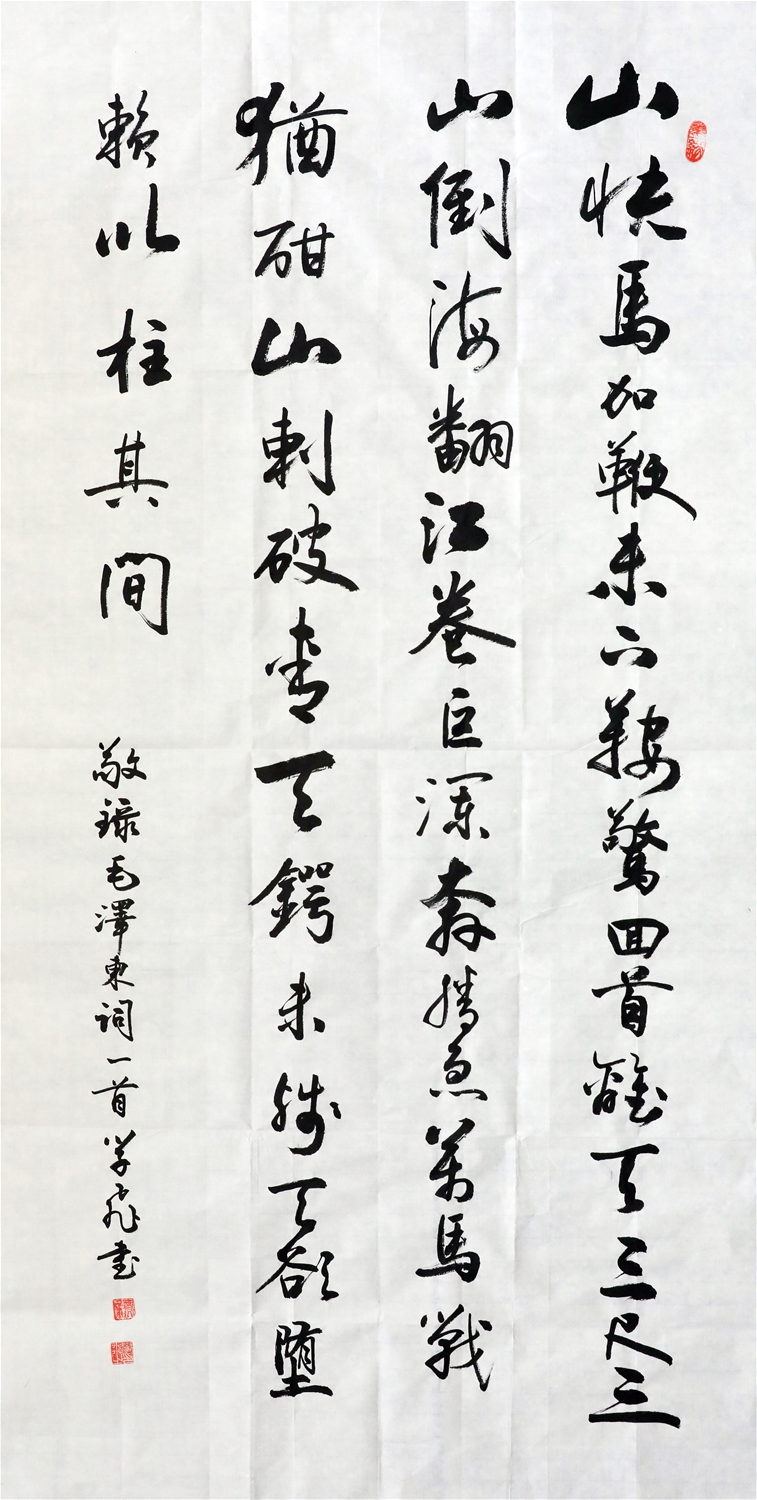 山快馬加鞭未下鞍驚回首離天三尺三
山倒海翻江卷巨瀾奔騰急萬馬戰
猶酣山刺破青天鍔未殘天欲墮
賴以柱其間
敬録毛澤東詞一首学飛書